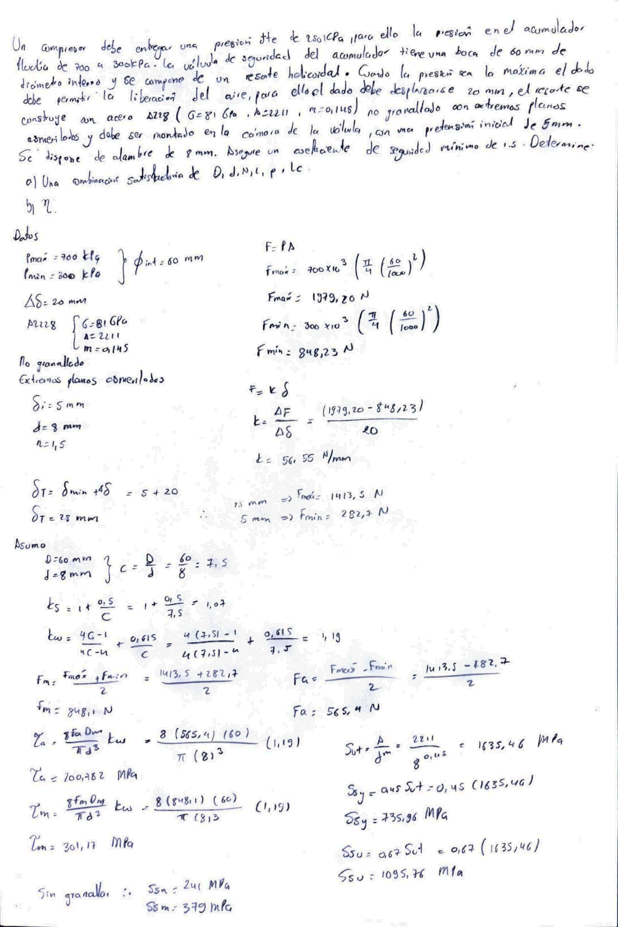 Un compresor debe entregar una presión cte de 250 kPa, para ello la presión en el acumulador
fluctúa de 700 a 300 kPa. La válvula de seguridad del acumulador tiene una boca de 60 mm de
diámetro interno y se compone de un resorte helicoidal. Cuando la presión sea la máxima el dado
debe permitir la liberación del aire, para ello el dado debe desplazarse 20 mm, el resorte se
construye con acero A228 (G=81 Gpa, A=2211, m=0,145) no granallado con extremos planos
esmerilados y debe ser montado en la cámara de la válvula, con una pretensión inicial de 5mm.
Se dispone de alambre de 8 mm. Asegure un coeficiente de seguridad mínimo de 1.5. Determine.
a) Una combinación satisfactoria de D, d, N, L, p, Lc.
b) η.
Datos
Pmax = 700 kPa
Pmin = 300 kPa } ϕint = 60 mm
Δδ = 20 mm
A2228 { G=81 GPa
A=2211
m=0,145
No granallado
Extremos planos esmerilados
δi = 5 mm
d = 8 mm
n = 1,5
F = PA
Fmax = 700x10³ (π/4 (60/1000)²)
Fmax = 1979,20 N
Fmin = 300 x10³ (π/4 (60/1000)²)
Fmin = 848,23 N
F = k δ
k = ΔF/Δδ = (1979,20 - 848,23)/20
k = 56,55 N/mm
δT = δmin + Δδ = 5 + 20
δT = 25 mm
∴ mm => Fmax = 1413,5 N
5 mm => Fmin = 282,7 N
Asumo
D=60 mm
d=8 mm } C = D/d = 60/8 = 7,5
ks = 1 + 0,5/C = 1 + 0,5/7,5 = 1,07
kw = 4C-1/4C-4 + 0,615/C = 4(7,5)-1/4(7,5)-4 + 0,615/7,5 = 1,19
Fm = Fmax + Fmin/2 = 1413,5 + 282,7/2
Fm = 848,1 N
Fa = Fmax - Fmin/2 = 1413,5 - 282,7/2
Fa = 565,4 N
τa = 8FaDm/πd³ kw = 8(565,4)(60)/π(8)³ (1,19)
τa = 200,782 MPa
τm = 8FmDm/πd³ kw = 8(848,1)(60)/π(8)³ (1,19)
τm = 301,17 MPa
Sut = A/dᵐ = 2211/8^0,145 = 1635,46 MPa
Ssy = 0,45 Sut = 0,45 (1635,46)
Ssy = 735,96 MPa
Ssu = 0,67 Sut = 0,67 (1635,46)
Ssu = 1095,76 MPa
Sin granallar ∴ Ssa = 241 MPa
Ssm = 379 MPa